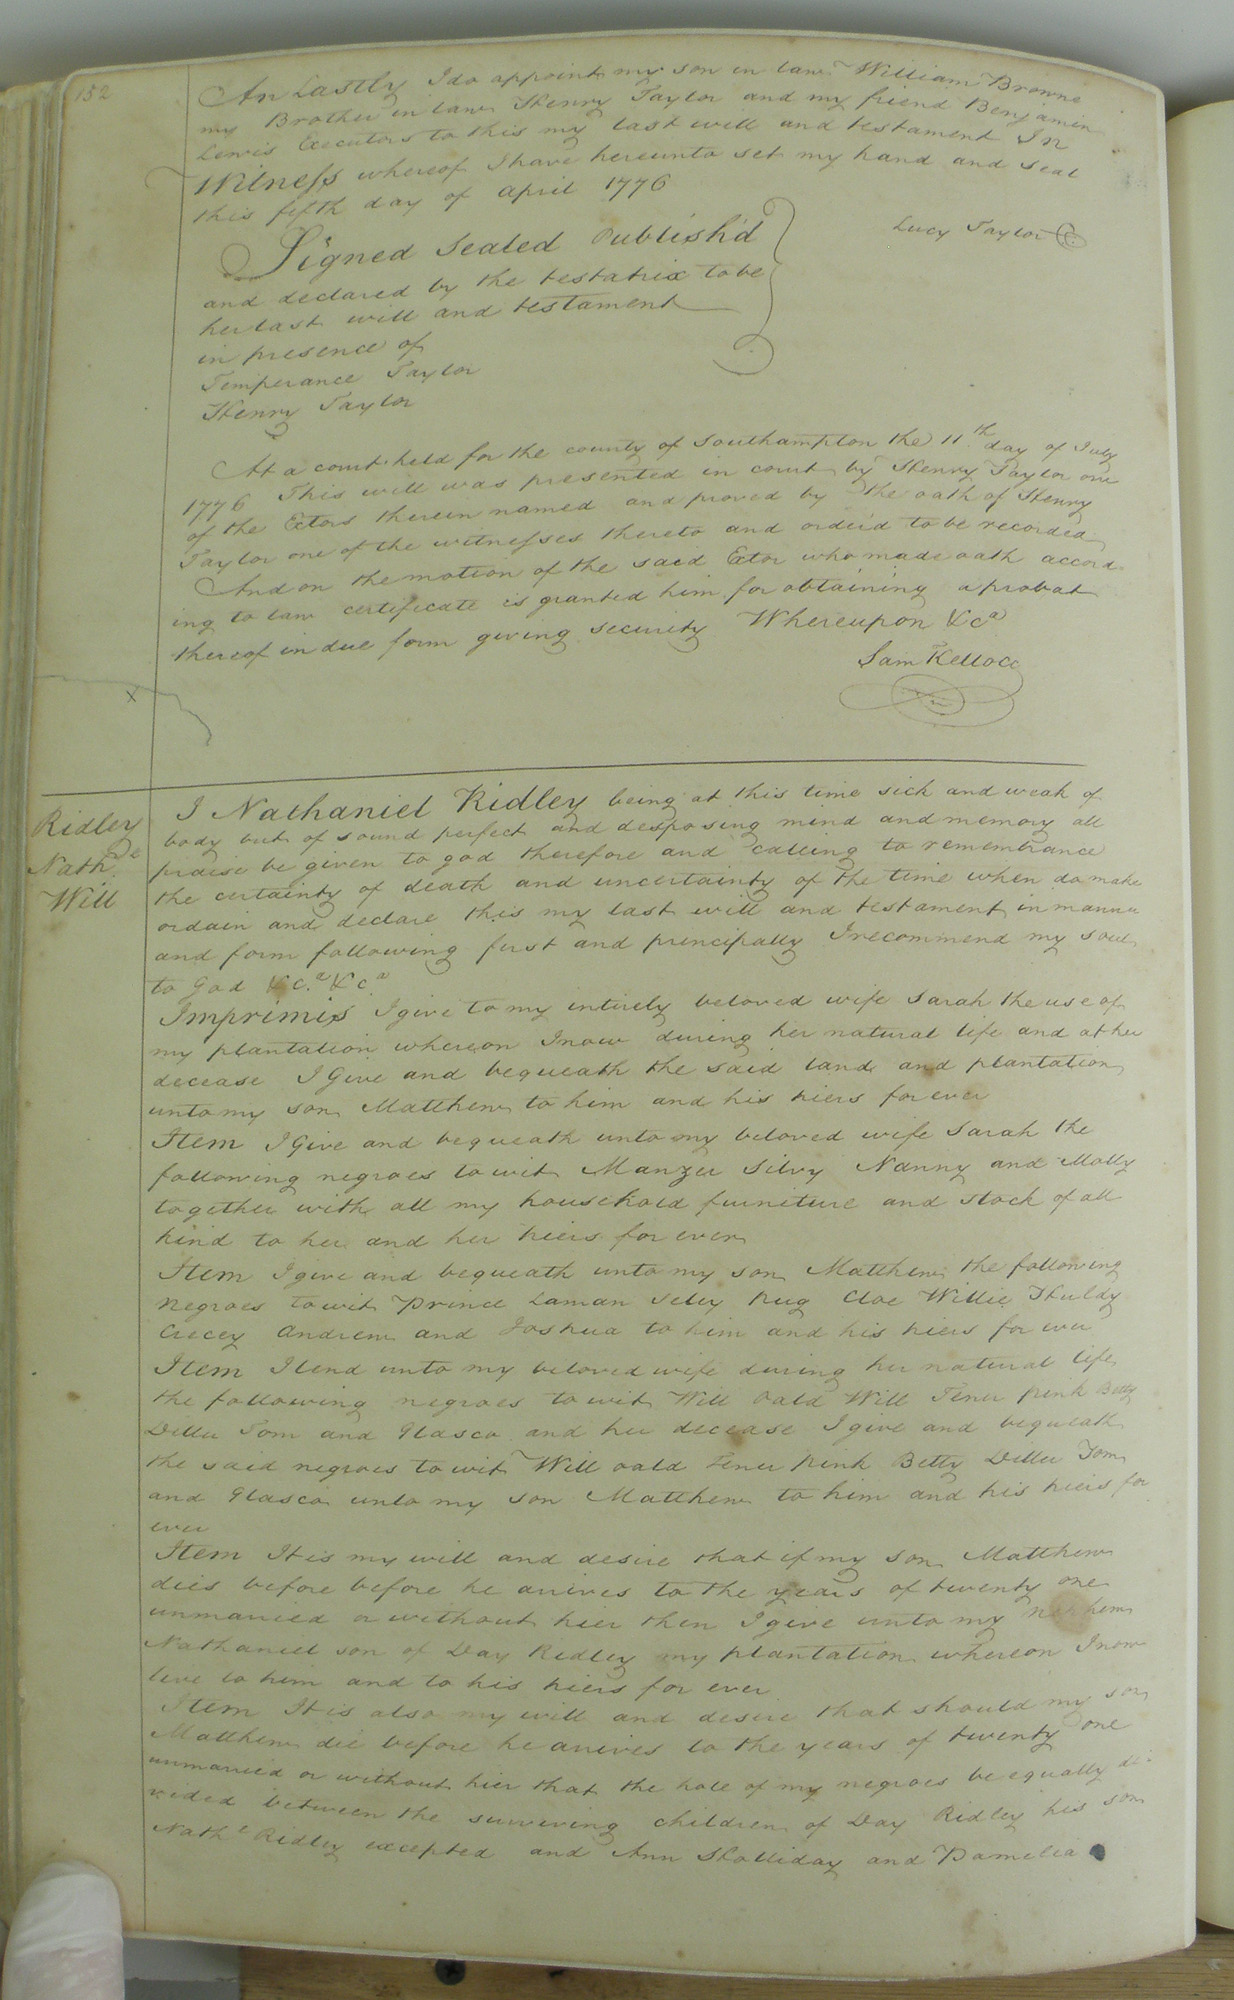 152
An Lastly I do appoint my son in law William Browne
my Brother in law Henry Taylor and my friend Benjamin
Lewis Executors to this my last will and testament In
Witness whereof I have hereunto set my hand and seal
this fifth day of april 1776
Lucy Taylor
Signed Sealed Publish'd
and declared by the testatrix to be
her last will and testament
in presence of
Temperance Taylor
Henry Taylor
At a court held for the county of Southampton the 11th day of July
1776 This will was presented in court by Henry Taylor one
of the Exτors therein named and proved by the oath of Henry
Taylor one of the witnesses thereto and order'd to be recorded
And on the motion of the said Extor who made oath accord
ing to law certificate is granted him for obtaining a probat
thereof in due form giving security Whereupon &ca
Sam Kello CC
x
Ridley
Nathle
Will
I Nathaniel Ridley being at this time sick and weak of
body but of sound perfect and desposing mind and memory all
praise be given to god therefore and calling to remembrance
the certainty of death and uncertainty of the time when do make
ordain and declare this my last will and testament in manner
and form following first and principally I recommend my soul
to God &c.a &c.a
Imprimis I give to my intirely beloved wife Sarah the use of
my plantation whereon I now during her natural life and at her
decease I Give and bequeath the said land and plantation
unto my son Matthew to him and his hiers for ever
Item I Give and bequeath unto my beloved wife Sarah the
following negroes to wit Manzer Silvy Nanny and Molly
together with all my household furniture and stock of all
kind to her and her hiers for ever
Item I give and bequeath unto my son Matthew the following
negroes to wit Prince Laman Seley Cloe Willie Huldy
Crecey Andrew and Joshua to him and his hiers for ever
Item I lend unto my beloved wife during her natural life
the following negroes to wit Will oald Will Tener Betty
Diller Tom and Glasco and her decease I give and bequeath
the said negroes to wit Will oald Tener Betty Diller Tom
and Glasco unto my son Matthew to him and his hiers for
ever
Item It is my will and desire that if my son Matthew
dies before before he arives to the years of twenty one
unmaried or without hier then I give unto my nephew
Nathaniel son of Day Ridley my plantation whereon I now
live to him and to his hiers for ever
Item It is also my will and desire that should my son
Matthew die before he arives to the years of twenty one
unmaried or without hier that the hole of my negroes be equally di-
vided between the surviving children of Day Ridley his son
Nathl Ridley excepted and Ann Holliday and Pamelia